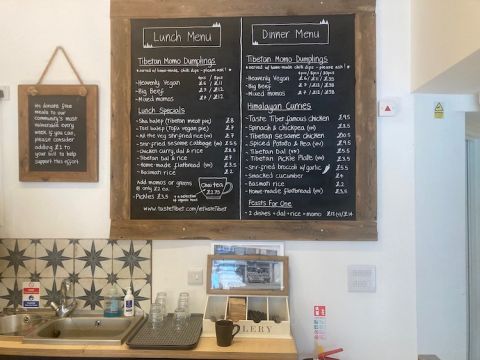 We donate free meals to our community's most vulnerable every week. If you can, please consider adding £1 to your bill to help support this effort!
Lunch Menu
Tibetan Momo Dumplings
*served w/ home-made chilli dips - please ask! *
-Heavenly Vegan
-Big Beef
-Mixed momos
Lunch Specials
- Sha balep (Tibetan meat pie) £8
- Tsel balep (Tofu vegan pie) £7
- All the veg stir-fried rice £7
- Stir-fried sesame cabbage (sm) £5.5
- Chicken curry, dal & rice £8
- Tibetan dal & rice £7
- Home-made flatbread (sm) £3.5
- Basmati rice £2
Add momos or greens @ only £2 ea.
- Pickles £3.5
Chai tea £2.75
www.tastetibet.com/eattastetibet
Dinner Menu
Tibetan Momo Dumplings
*served w/ home-made chilli dips - please ask! *
-Heavenly Vegan
-Big Beef
-Mixed momos
Himalayan Curries
- Taste Tibet famous chicken £9.5
- Spinach & chickpea (sm)
- Tibetan sesame chicken
- Spiced Potato & Pea (sm)
- Tibetan Dal (sm)
- Tibetan Pickle Plate (sm) £3.5
- Stir-fried broccoli w/ garlic £5.5
- Smacked cucumber £4
- Basmati rice £2
- Home-made flatbread (sm) £3.5
Feasts For One
- 2 dishes + dal + rice + momo